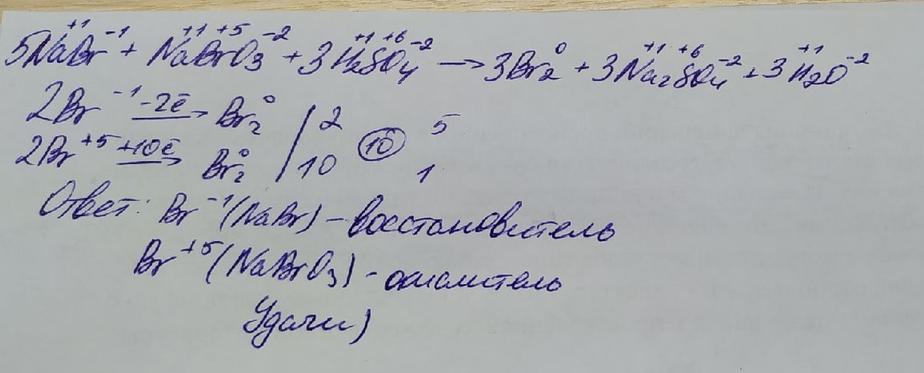 5Na⁺¹Br⁻¹ + Na⁺¹Br⁺⁵O₃⁻² + 3H₂⁺¹S⁺⁶O₄⁻² → 3Br₂⁰ + 3Na₂⁺¹S⁺⁶O₄⁻² + 3H₂⁺¹O⁻²
2Br⁻¹ -2ē→ Br₂⁰ | 2 10 5
2Br⁺⁵ +10ē→ Br₂⁰ | 10 1
Ответ: Br⁻¹ (NaBr) - восстановитель
Br⁺⁵ (NaBrO₃) - окислитель
Удачи)